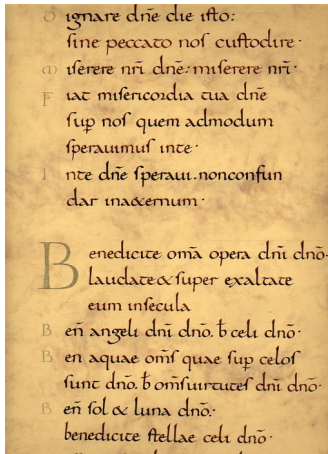 D ignare dnē die isto:
sine peccato nos custodire·
M iserere nrī dnē: miserere nrī·
F iat misericordia tua dnē
sup̄ nos quem admodum
speravimus inte·
I nte dnē speravi. nonconfun
dar inaeternum·
Benedicite omā opera dnī dnō·
laudate & super exaltate
eum insecula
B eñ angeli dnī dnō. b̄ celi dnō·
B en aquae oms̄ quae sup̄ celos
sunt dnō. b̄ oms̄uirtutes dnī dnō·
B eñ sol & luna dnō:·
benedicite stellae celi dnō·